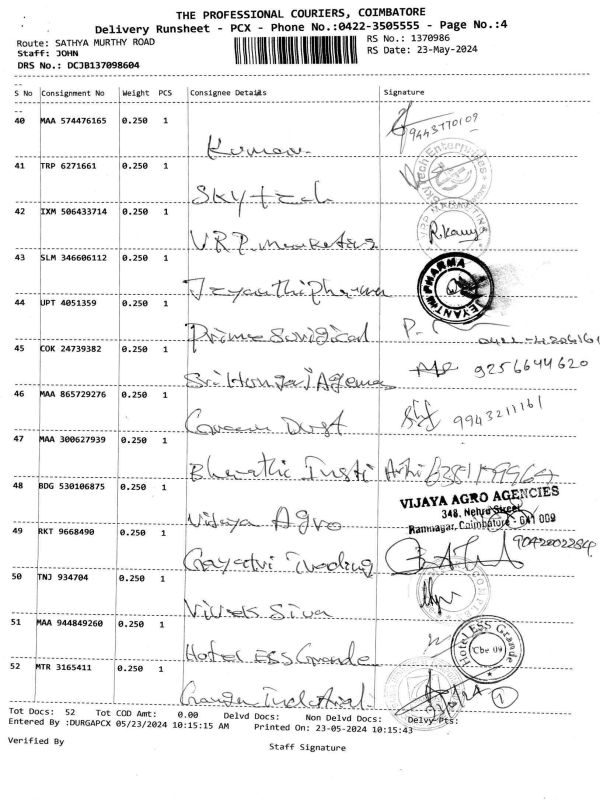 THE PROFESSIONAL COURIERS, COIMBATORE
Delivery Runsheet - PCX - Phone No.:0422-3505555 - Page No.:4
Route: SATHYA MURTHY ROAD
RS No.: 1370986
Staff: JOHN
RS Date: 23-May-2024
DRS No.: DCJB137098604
S No Consignment No Weight PCS Consignee Details Signature
40 MAA 574476165 0.250 1
9443770109
Kumar
41 TRP 6271661 0.250 1
Sky tech
42 IXM 506433714 0.250 1
V.R.P. Marketing
43 SLM 346606112 0.250 1
JEYANTHI PHARMA
Jeyanthi Pharma
44 UPT 4051359 0.250 1
Prime Surgical
45 COK 24739382 0.250 1
9256644620
46 MAA 865729276 0.250 1
9943211161
47 MAA 300627939 0.250 1
Bharathi Insti
48 BDG 530106875 0.250 1
VIJAYA AGRO AGENCIES
348, Nehru Street,
Ramnagar, Coimbatore - 641 009
Vijaya Agro
49 RKT 9668490 0.250 1
Gayatri Trading
50 TNJ 934704 0.250 1
Vivek Siva
51 MAA 944849260 0.250 1
Hotel ESS Grande
Cbe 09
Hotel ESS Grande
52 MTR 3165411 0.250 1
Industrial
1
Tot Docs: 52 Tot COD Amt: 0.00 Delvd Docs: Non Delvd Docs: Delvy Pts:
Entered By :DURGAPCX 05/23/2024 10:15:15 AM Printed On: 23-05-2024 10:15:43
Verified By
Staff Signature